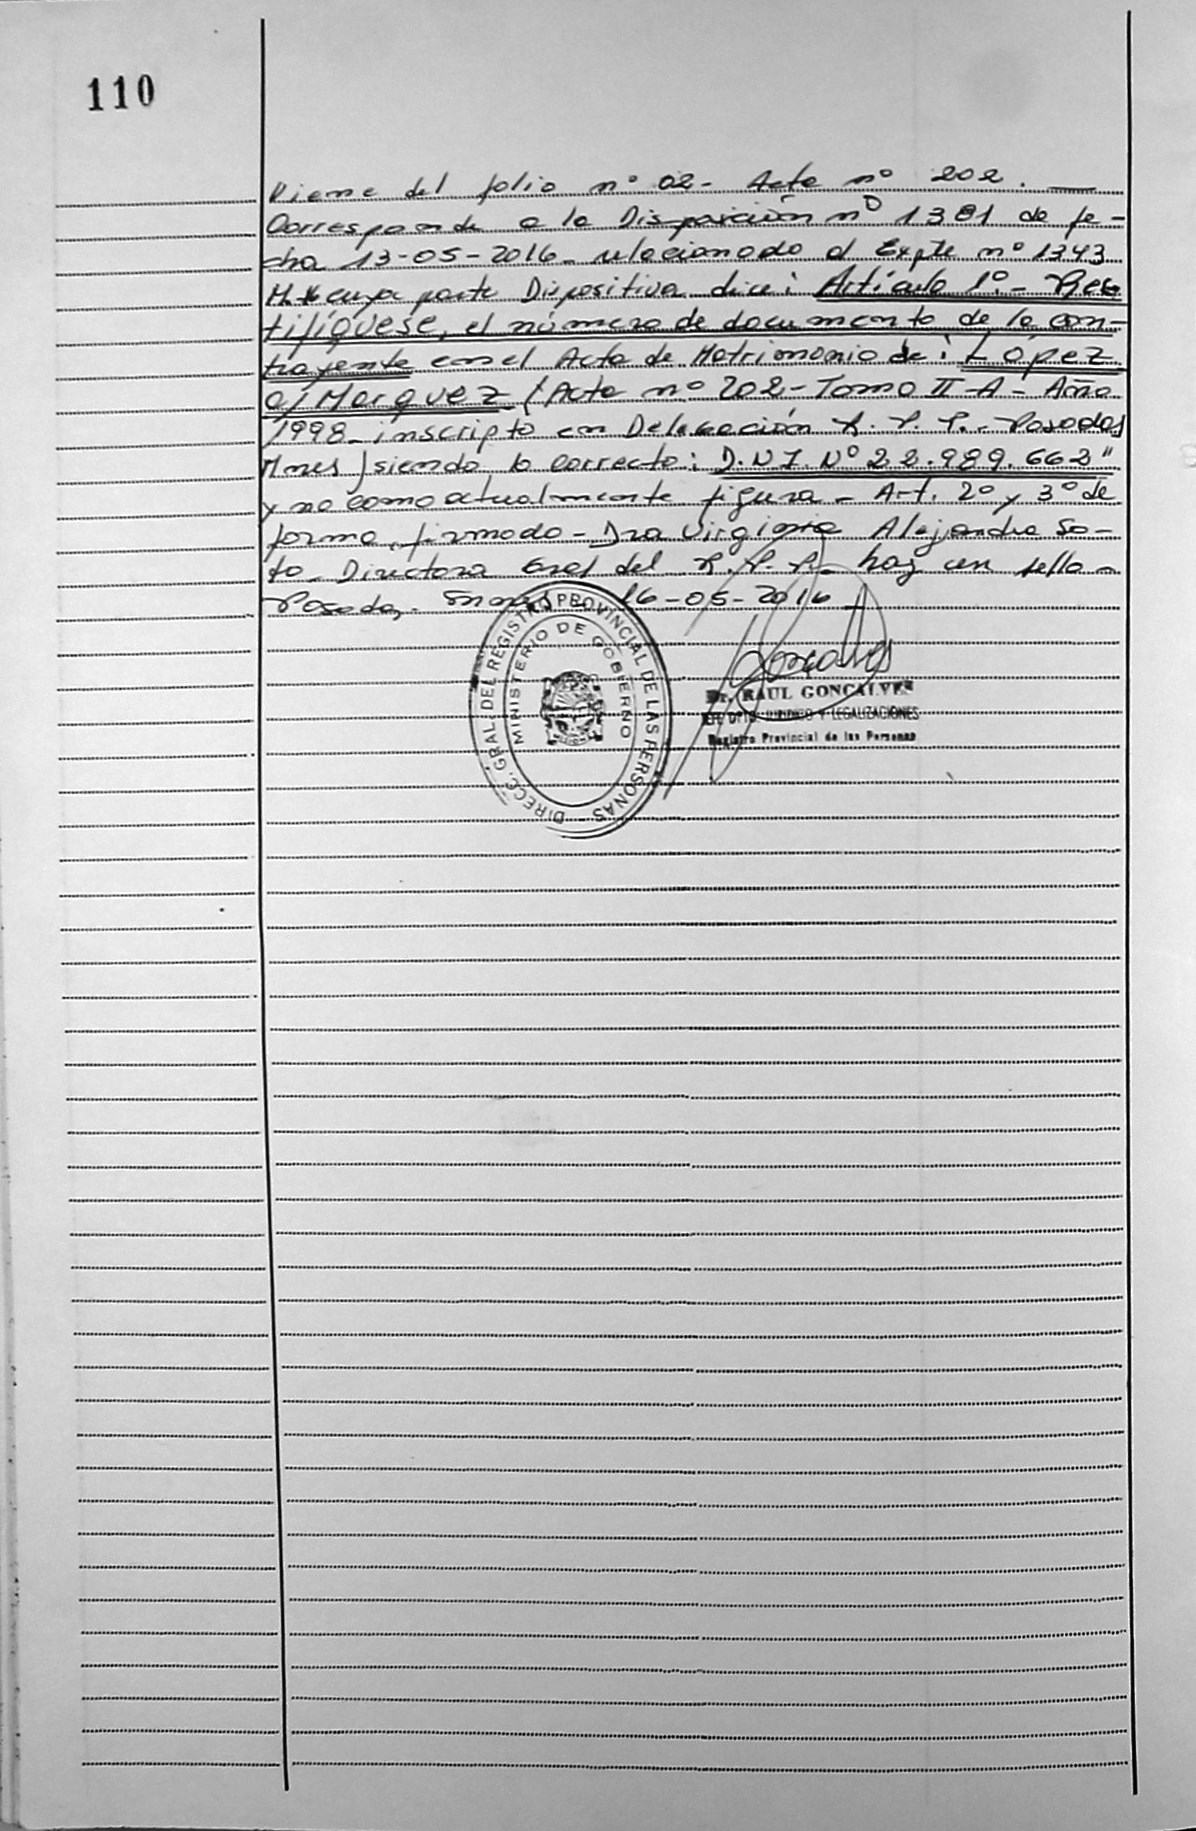 110
Viene del folio nº 02- Acta nº 202.
Corresponde a la Disposición nº 1381 de fe-
cha 13-05-2016- relacionado al Expte nº 1343
cuya parte Dispositiva dice: Artículo 1º.- Rec
tifíquese, el número de documento de la con-
trayente en el Acta de Matrimonio de: López
c/ Marquez (Acta nº 202- Tomo II-A- Año
1998- inscripto en Delegación R.P.P.- Posadas
Mnes) siendo lo correcto: D.N.I. Nº 22.989.662"
y no como actualmente figura- Art. 2º y 3º de
forma, firmado- Dra Virginia Alejandra So-
to- Directora Gral del R.P.P- hay un sello-
Posadas, 16-05-2016
DIRECC. GRAL. DEL REGISTRO PROVINCIAL DE LAS PERSONAS
MINISTERIO DE GOBIERNO
Goncalves
Dr. RAUL GONCALVES
DPTO. JURIDICO Y LEGALIZACIONES
Registro Provincial de las Personas